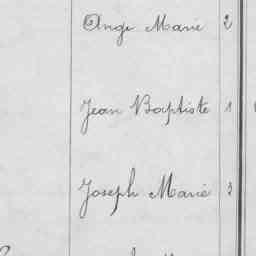 Ange Marie 2
Jean Baptiste 1
Joseph Marie 3